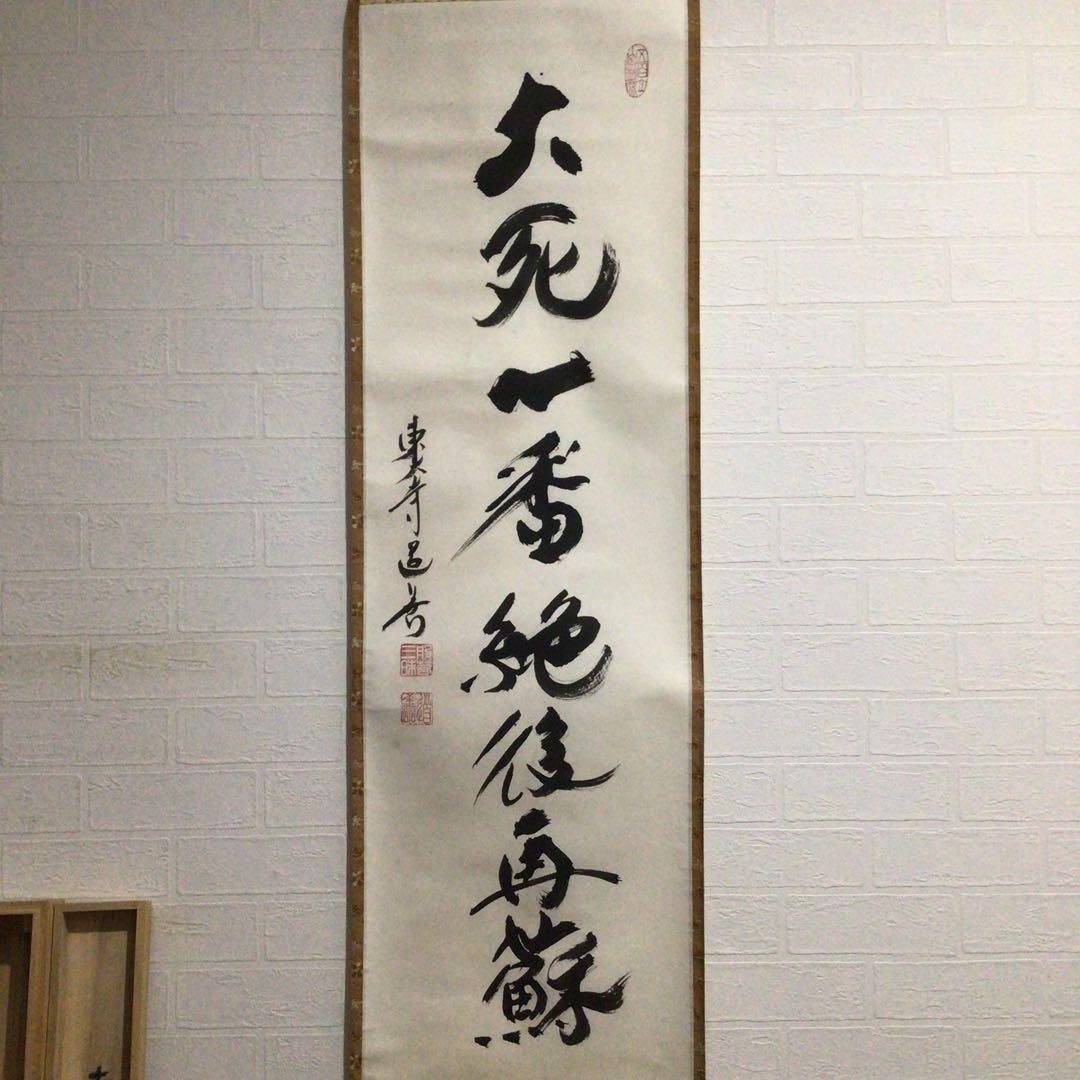 大死一番絶後再蘇
東大寺